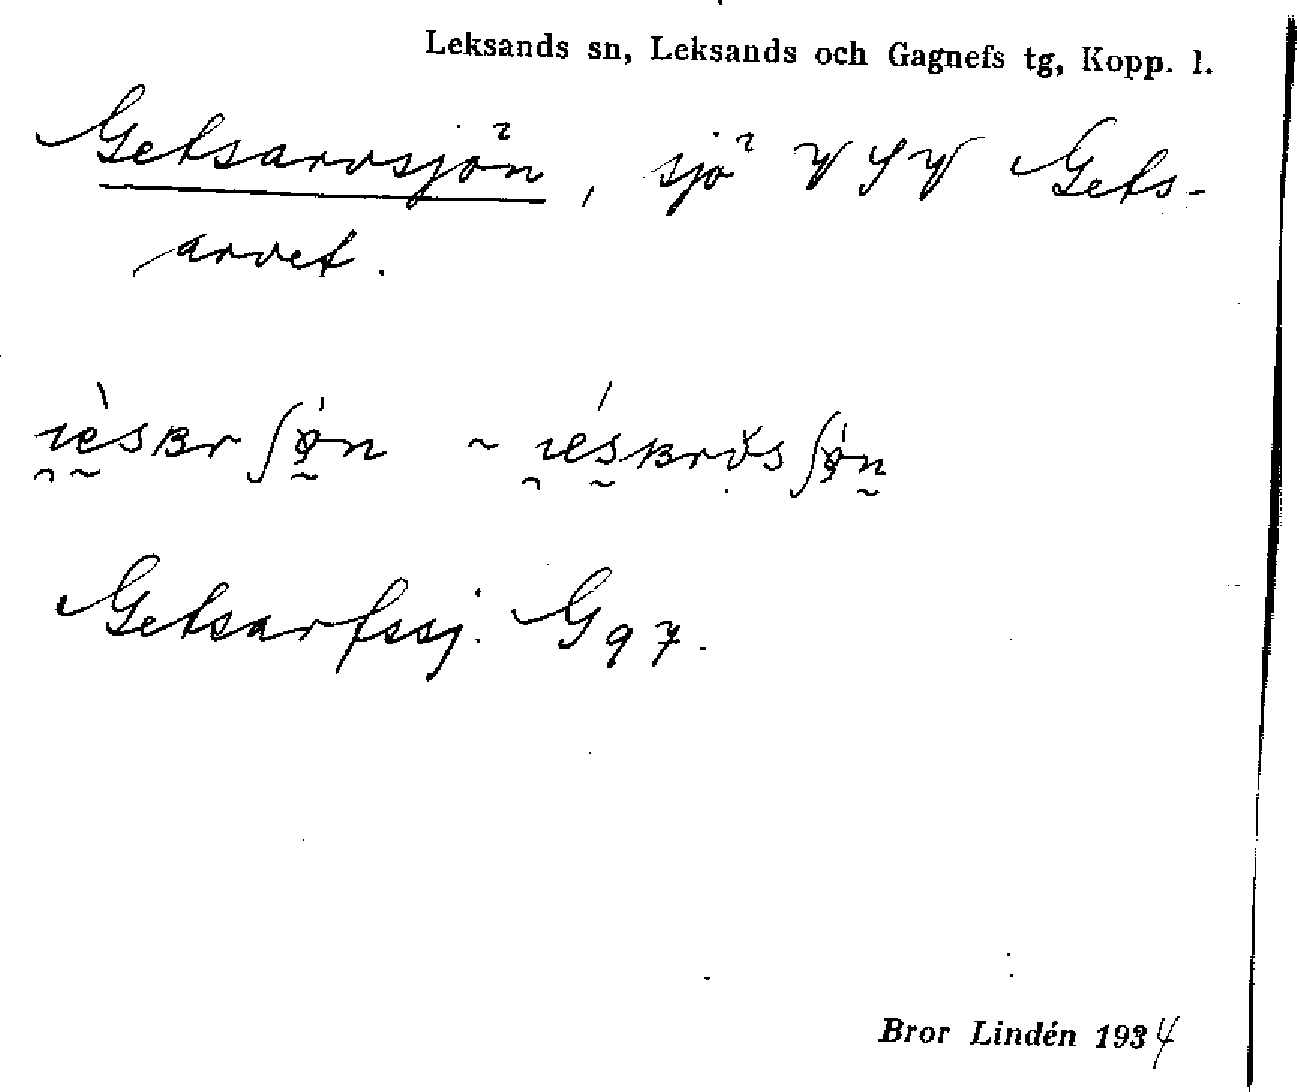 Leksands sn, Leksands och Gagnefs tg, Kopp. l.
Getsarvsjön, sjö VSV Gets-
arvet.
Getsarfssj. G 97.
Bror Lindén 1934